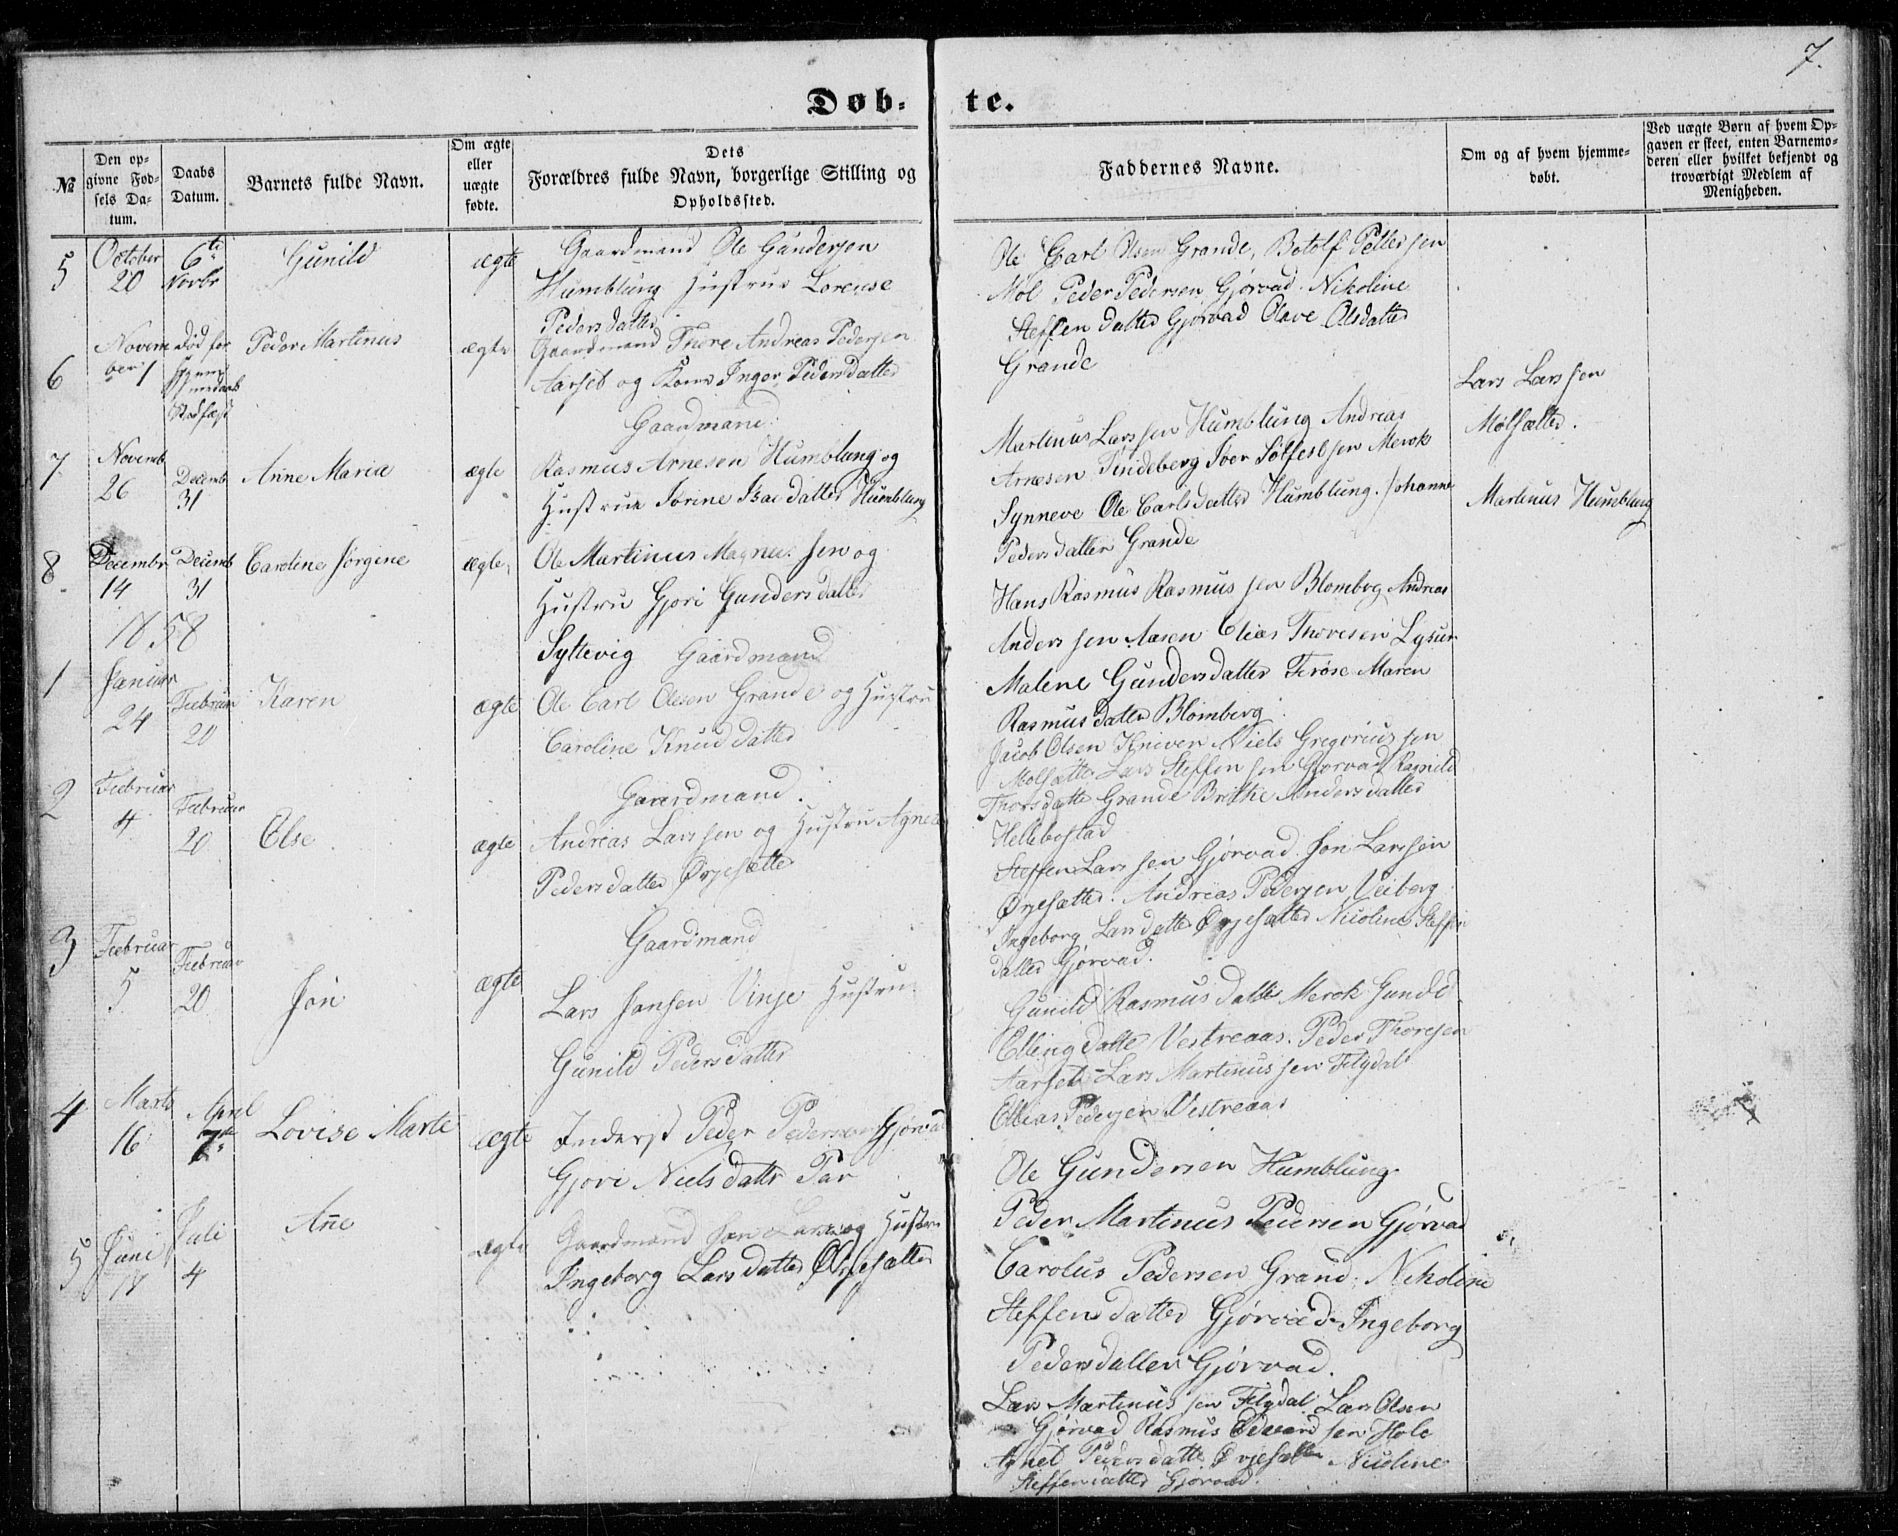 7.
Døb- te.
№
Den opgivne Fødsels Datum.
Daabs Datum.
Barnets fulde Navn.
Om ægte eller uægte fødte.
Dets Forældres fulde Navn, borgerlige Stilling og Opholdssted.
Faddernes Navne.
Om og af hvem hjemmedøbt.
Ved uægte Børn af hvem Opgaven er skeet, enten Barnemoderen eller hvilket bekjendt og troværdigt Medlem af Menigheden.
5 October 20 6te Novbr Gunild ægte
Gaardmand Ole Gundersen
Humblung Hustrue Lorense
Peders datter
Ole Carl Olsen Grande, Botolf Pettersen
Mol Peder Pedersen Gjørvad Nikoline
Steffen datter Gjørvad Olave Olsdatter
Grande
6 November 1 død før Peder Martinus ægte
Gaardmand Thore Andreas Pedersen
Aarset og Kone Inger Pedersdatter
Lars Larssen
Molsætter.
7 Novemb 26 Decemb 31 Anne Maria ægte
Gaardmand
Rasmus Arnesen Humblung og
Hustrue Jørine Isac datter Humblung
Martinus Larssen Humblung Andreas
Arnesen Tindeberg Iver Sølfestsen Merok
Synneve Ole Carls datter Humblung. Johanne
Peders datter Grande
Martinus Humblung
8 Decembr 14 Decemb 31 Caroline Jørgine ægte
Ole Martinus Magnu.sen og
Hustru Gjøri Gunders datter
Syltevig
Hans Rasmus Rasmussen Blomberg Andreas
Anderssen Aasen Elias Thoresen
Malene Gundersdatter Maren
Rasmusdatter Blomberg
1858
1 Januar 24 Februar 20 Karen ægte
Gaardmand
Ole Carl Olesen Grande og Hustru
Caroline Knuddatter
Jacob Olsen Kniven Niels Gregoriussen
Molsætter Lars Steffensen Gjørvad Ragnild
Thorsdatter Grande Brithe Andersdatter
Hellebostad
2 Februar 4 Februar 20 Else ægte
Gaardmand.
Andreas Larssen og Hustru Agnet
Pedersdatter Ørjesætter
Steffen Larssen Gjørvad. Jon Larssen
Ørjesætter. Andreas Pedersen Veiberg
Ingeborg Larsdatter Ørjesætter Nicoline Steffen
datter Gjørvad.
3 Februar 5 Februar 20 Jon ægte
Gaardmand
Lars Jonsen Vinje Hustru
Gunild Pedersdatter
Gunild Rasmusdatter Merok
Ellingdatter Vestreaas. Peder Thoresen
Aarset Lars Martinussen Flydal
Ellias Pedersen Vestreaas
4 Marts 16 April 7de Lovise Marte ægte
Inderst Peder Pedersen Gjørvad
Gjøri Nielsdatter Par
Ole Gundersen Humblung
Peder Martinus Pedersen Gjørvad
Carolus Pedersen Grand. Nikoline
Steffensdatter Gjørvad. Ingeborg
Pedersdatter Gjørvad.
5 Juni 17 Juli 4 Añe ægte
Gaardmand Larsen og Hustru
Ingeborg Larsdatter Ørjesætter
Lars Martinussen Flydal Lars Olsen
Gjørvad Rasmus Edvardsen Hole
Agnet Pedersdatter Ørjesætter Nicoline
Steffensdatter Gjørvad.